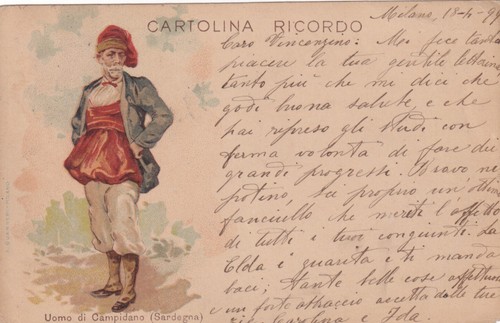 CARTOLINA RICORDO
Milano, 18-4-9
Caro Vincenzino: Mi fece tanto
piacere la tua gentile letterina
tanto più che mi dici che
godi buona salute e che
hai ripreso gli studi con
ferma volontà di fare dei
grandi progressi. Bravo ni
potino, sei proprio un ottimo
fanciullo che meriti l'affetto
di tutti i tuoi congiunti. La
Elda è guarita e ti manda
baci; tante belle cose affettuose
e un forte abbraccio accetta dalle tue
zie Carolina e Ida.
Uomo di Campidano (Sardegna)